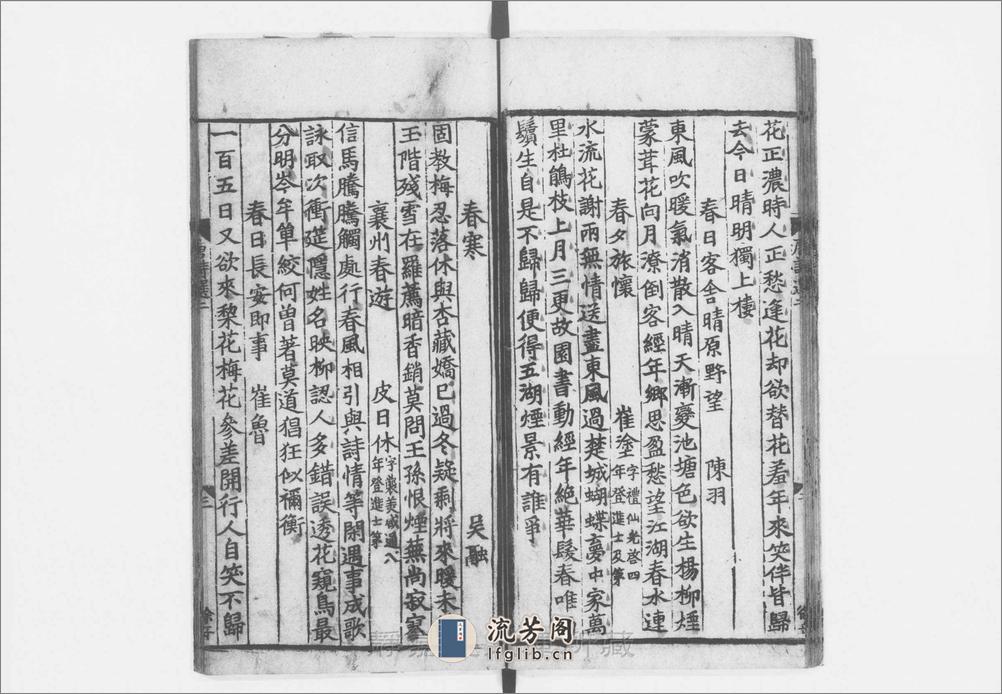 花正濃時人正愁逢花却欲替花羞年來笑伴皆歸
去今日晴明獨上樓
春日客舍晴原野望 陳羽
東風吹暖氣消散入晴天漸變池塘色欲生楊柳煙
蒙茸花向月潦倒客經年鄉思盈愁望江湖春水連
春夕旅懷 崔塗字禮仙光啓四年登進士及第
水流花謝兩無情送盡東風過楚城蝴蝶夢中家萬
里杜鵑枝上月三更故園書動經年絕華髮春唯
鬢生自是不歸歸便得五湖煙景有誰爭
春寒 吳融
固教梅忍落休與杏藏嬌已過冬疑剩將來暖未
玉階殘雪在羅薦暗香銷莫問王孫恨煙蕪尚寂寥
襄州春遊 皮日休字襲美咸通八年登進士第
信馬騰騰觸處行春風相引與詩情等閑遇事成歌
詠取次衝筵隱姓名映柳認人多錯誤透花窺鳥最
分明岑牟單絞何曽著莫道猖狂似禰衡
春日長安即事 崔魯
一百五日又欲來梨花梅花參差開行人自笑不歸
流芳閣
lfglib.cn